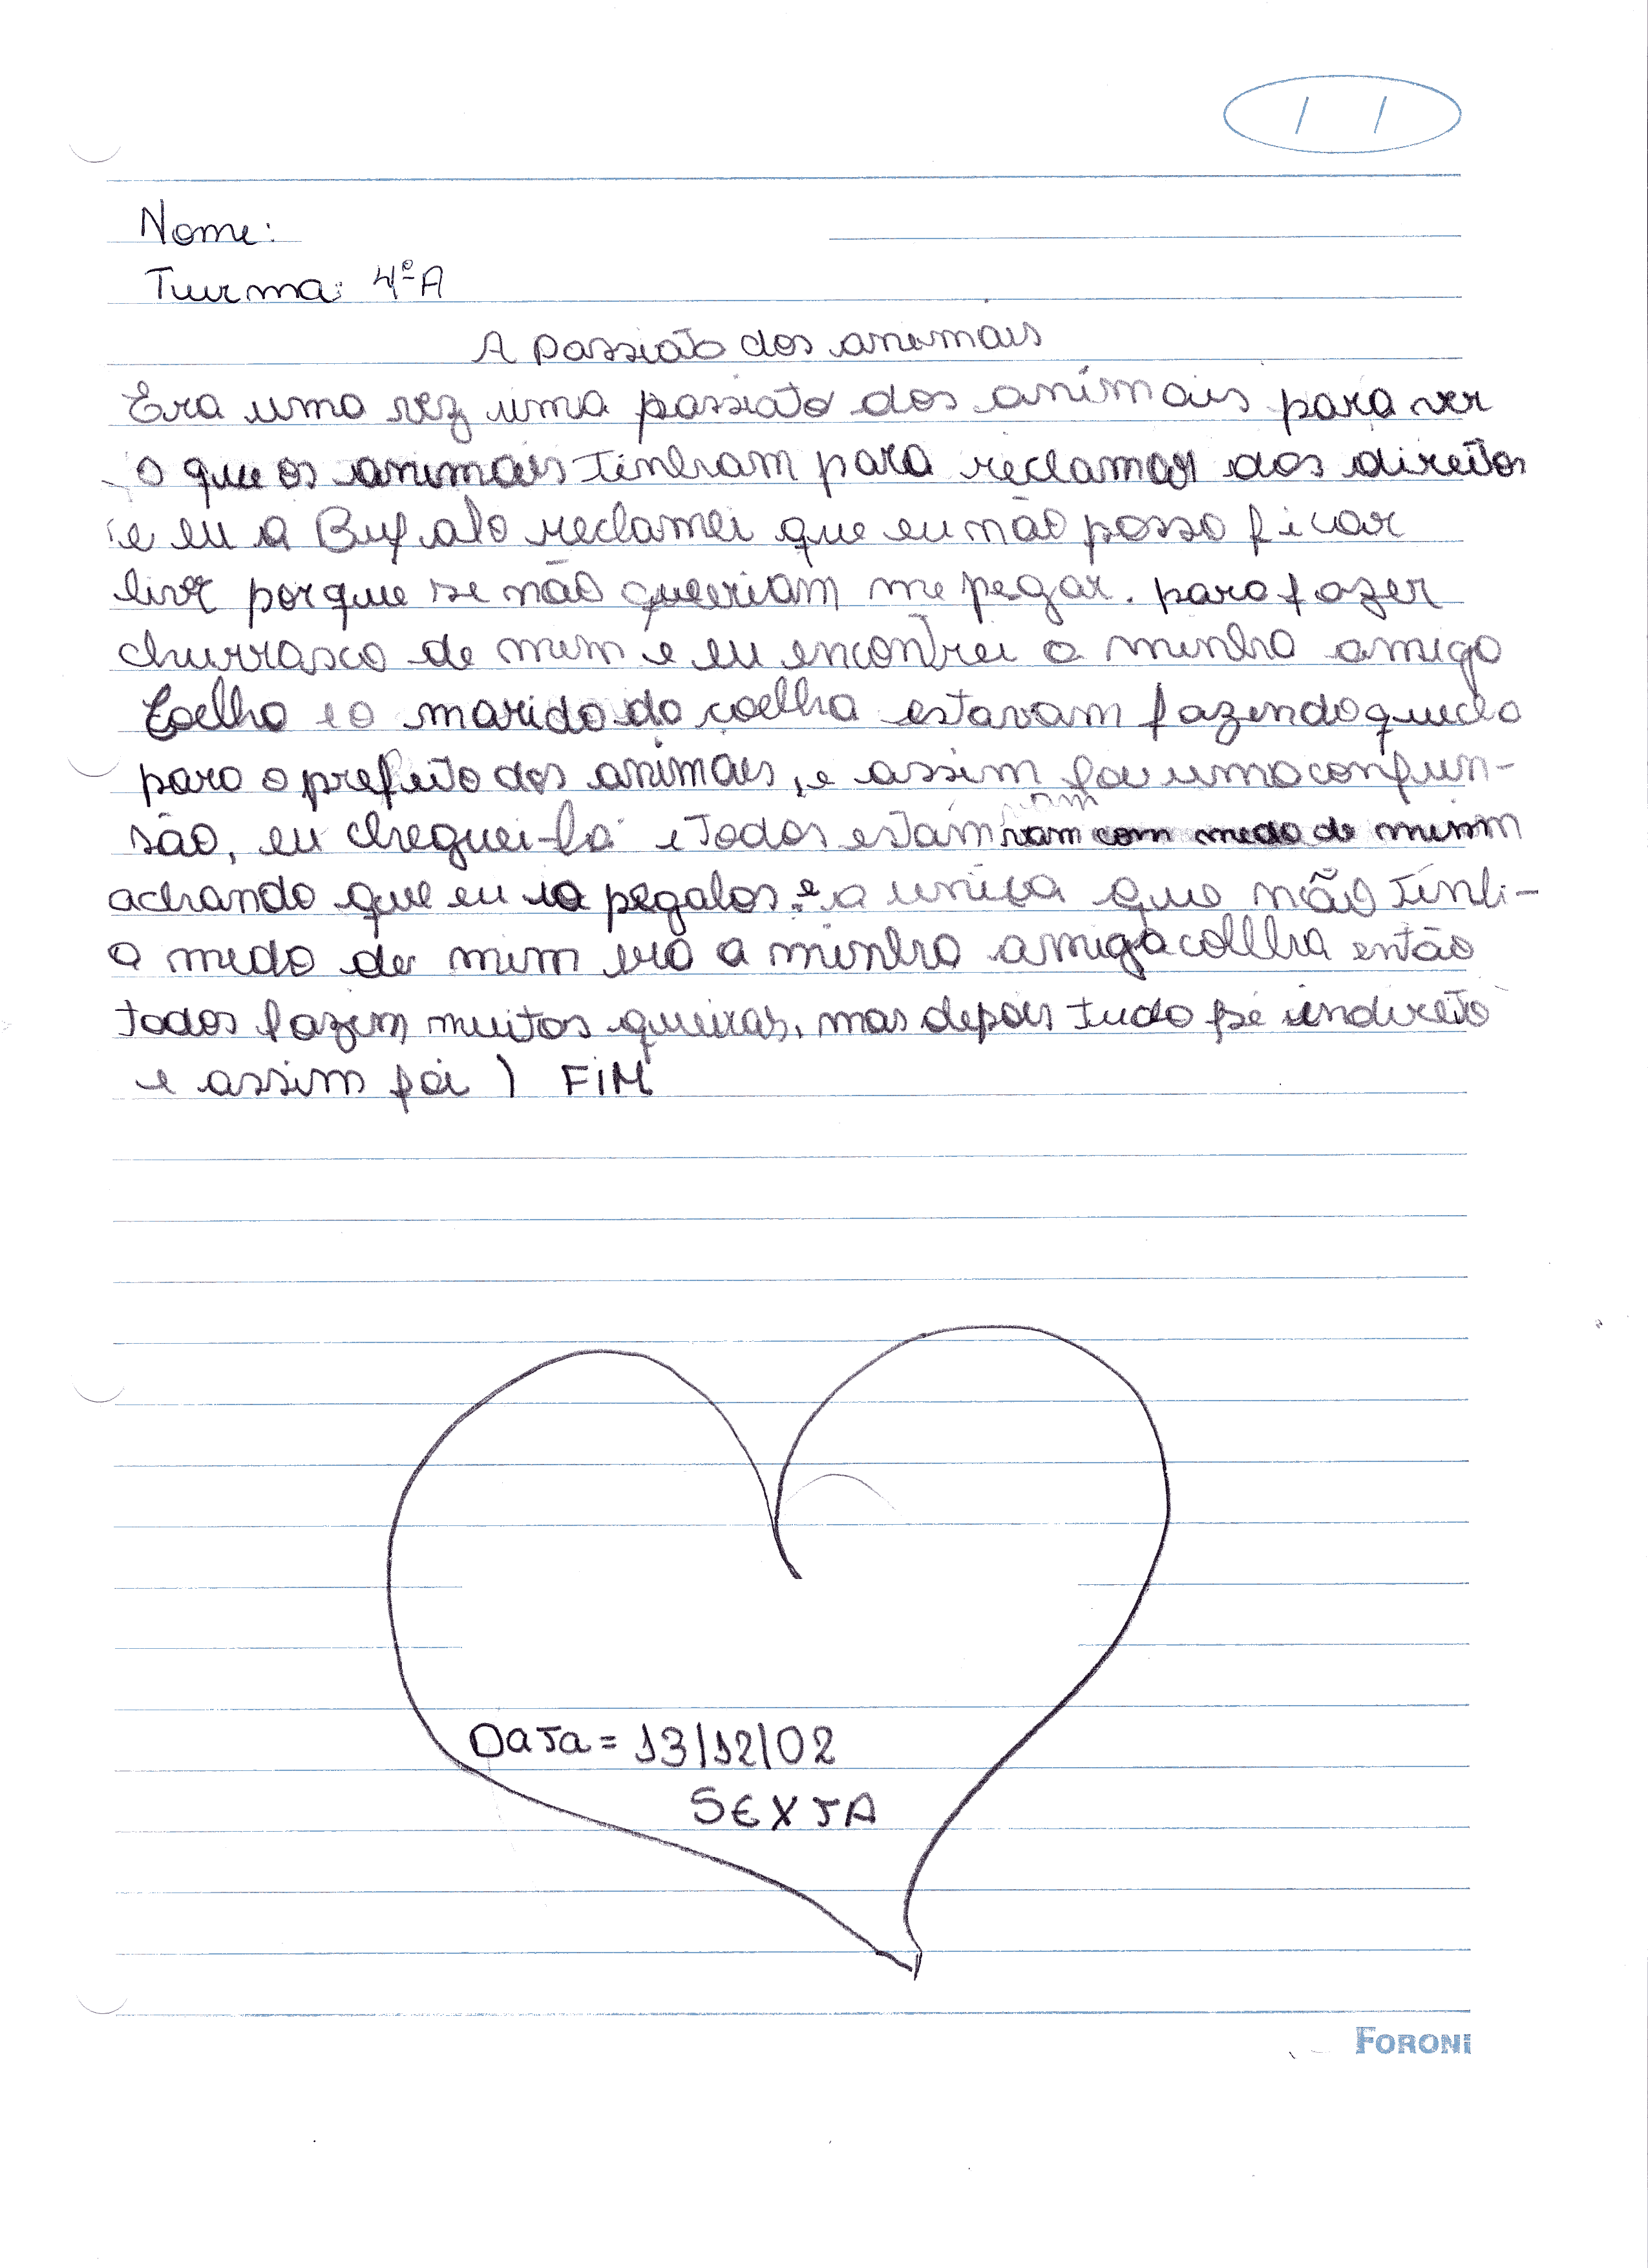 Nome:
Turma: 4ª A
A passiato dos animais
Era uma vez uma passiato dos animais para ver
o que os animais tinhram para reclamar dos direitos
e eu a Bufalo reclamei que eu não posso ficar
livre porque se não queriam me pegar. para fazer
churrasco de mim e eu encontrei a minha amiga
Coelha e o marido da coelha estavam fazendo
para o prefeito dos animais, e assim foi uma confun-
são, eu cheguei-lá e todos com medo de mimm
achando que eu ia pegalos e a unica que não tinh-
a medo de mim era a minha amiga então
todos fazem muitos queixas, mas depois tudo
e assim foi ) FIM
DATA = 13/12/02
SEXTA
FORONI